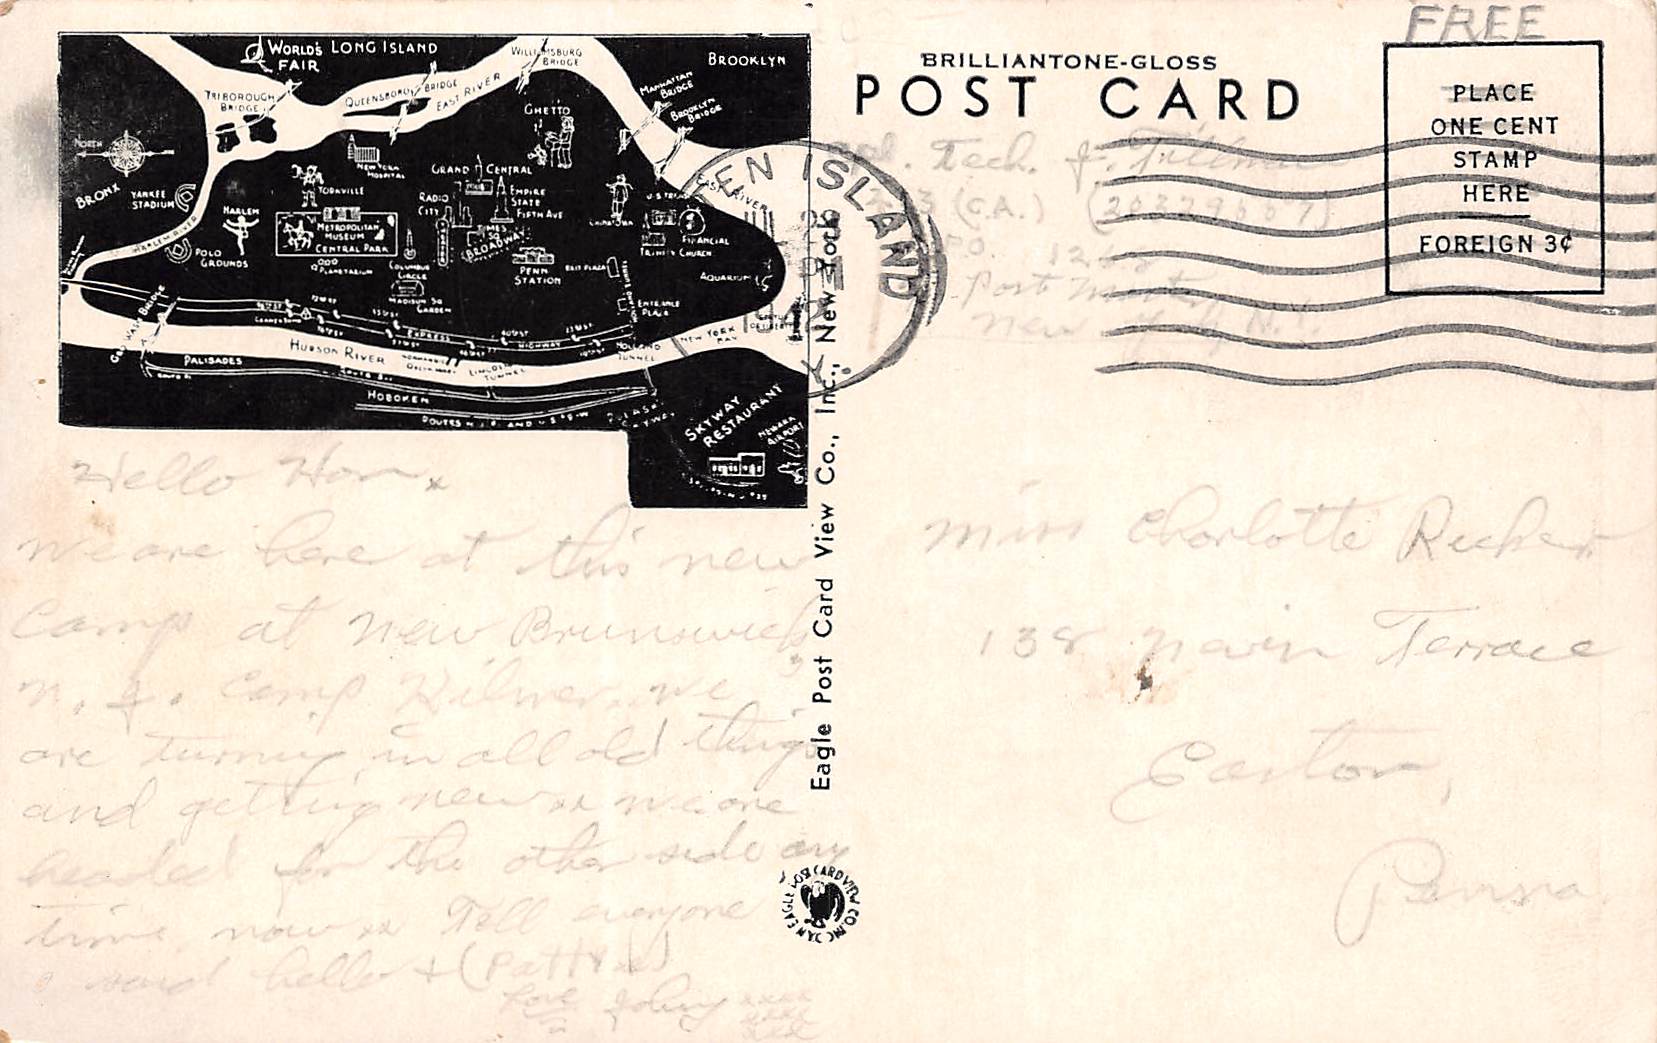 FREE
BRILLIANTONE-GLOSS
POST CARD
PLACE
ONE CENT
STAMP
HERE
FOREIGN 3¢
WORLD'S
FAIR
LONG ISLAND
WILLIAMSBURG
BRIDGE
BROOKLYN
TRIBOROUGH
BRIDGE
QUEENSBORO BRIDGE
EAST RIVER
MANHATTAN
BRIDGE
BROOKLYN
BRIDGE
GHETTO
NORTH
NEW YORK
HOSPITAL
GRAND CENTRAL
BRONX
YANKEE
STADIUM
YORKVILLE
RADIO
CITY
EMPIRE
STATE
FIFTH AVE
CHINATOWN
EAST RIVER
HARLEM
HARLEM RIVER
METROPOLITAN
MUSEUM
CENTRAL PARK
TIMES
SQ
BROADWAY
FINANCIAL
TRINITY CHURCH
POLO
GROUNDS
PLANETARIUM
COLUMBUS
CIRCLE
PENN
STATION
EXIT PLAZA
AQUARIUM
MADISON SQ
GARDEN
ENTRANCE
PLAZA
GEO. WASH. BRIDGE
EXPRESS
HIGHWAY
HUDSON RIVER
LINCOLN
TUNNEL
HOLLAND
TUNNEL
NEW YORK
BAY
PALISADES
HOBOKEN
SKYWAY
RESTAURANT
NEWARK
AIRPORT
EN ISLAND
Tech. J.
(C.A.)
Post Master
New York N.Y.
Eagle Post Card View Co., Inc., New York
Hello Hon.
We are here at this new
camp at New Brunswick
N. J. Camp Kilmer. We
are turning in all old things
and getting new xx we are
headed for the other side any
time now xx Tell everyone
I said hello + (Patty xx)
Love Johny xxxx
xxxx
xxx
Miss Charlotte
138 Nevin Terrace
Easton,
Penna.
EAGLE POST CARD VIEW CO. INC.